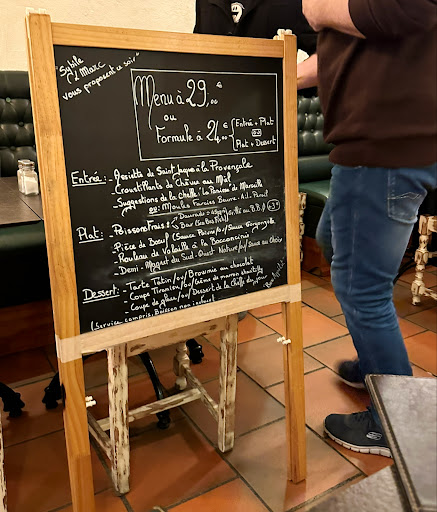 "Sybile & Marc
vous proposent ce soir"
Menu à 29,00 €
ou
Formule à 24,00 € { Entrée + Plat
ou
Plat + Dessert
Entrée: - Assiette de Saint Jacques à la Provençale
- Croustillants de Chèvre au Miel
- Suggestions de la Cheffe: "La Panisse" de Marseille
ou: Moules Farcies Beurre Ail Persil
Plat: - Poissons Frais! Daurade
Bar
- Pièce de Boeuf (Sauce Poivre/ou/Sauce Gorgonzola
- Rouleau de Volaille à la Bocconcini
- Demi-Magret du Sud-Ouest Nature/ou/Sauce au Choix
Dessert: - Tarte Tatin/ou/Brownie au chocolat
- Coupe Tiramisu/ou/Crème de marron chantilly
- Coupe de glace/ou/Dessert de la Cheffe du jour
(Service compris. Boisson non incluse)
Bon Appétit